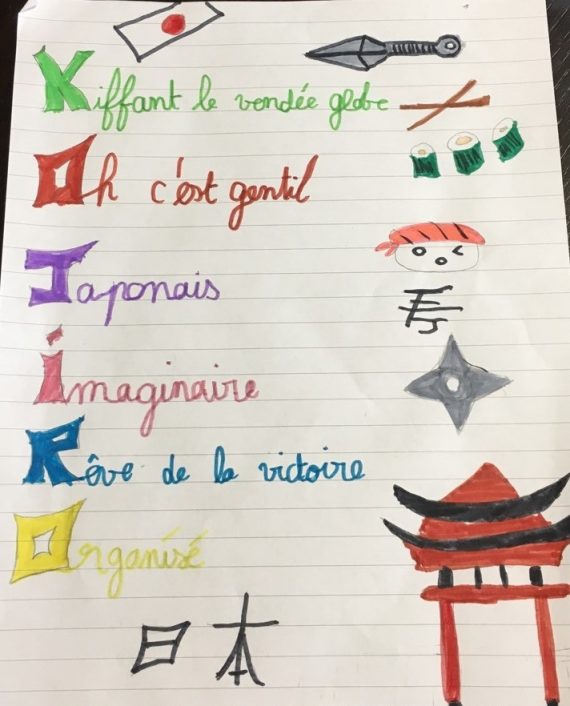 Kiffant le vendée globe
Oh c'est gentil
Japonais
imaginaire
Rêve de la victoire
Organisé
日本